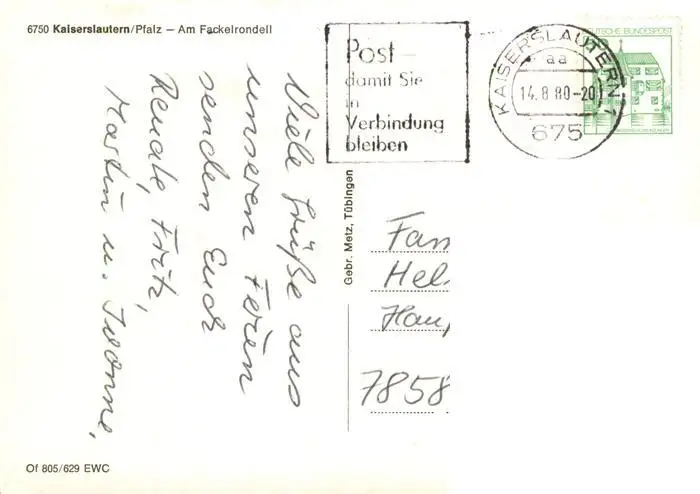 6750 Kaiserslautern/Pfalz – Am Fackelrondell
Post –
damit Sie
in
Verbindung
bleiben
KAISERSLAUTERN 1
aa
14.8.80-20
675
DEUTSCHE BUNDESPOST
Viele Grüße aus
unseren Ferien
senden Euch
Renate, Fritz,
Martin u. Ivonne,
Gebr. Metz, Tübingen
Fam
Hel
Hau
7858
Of 805/629 EWC